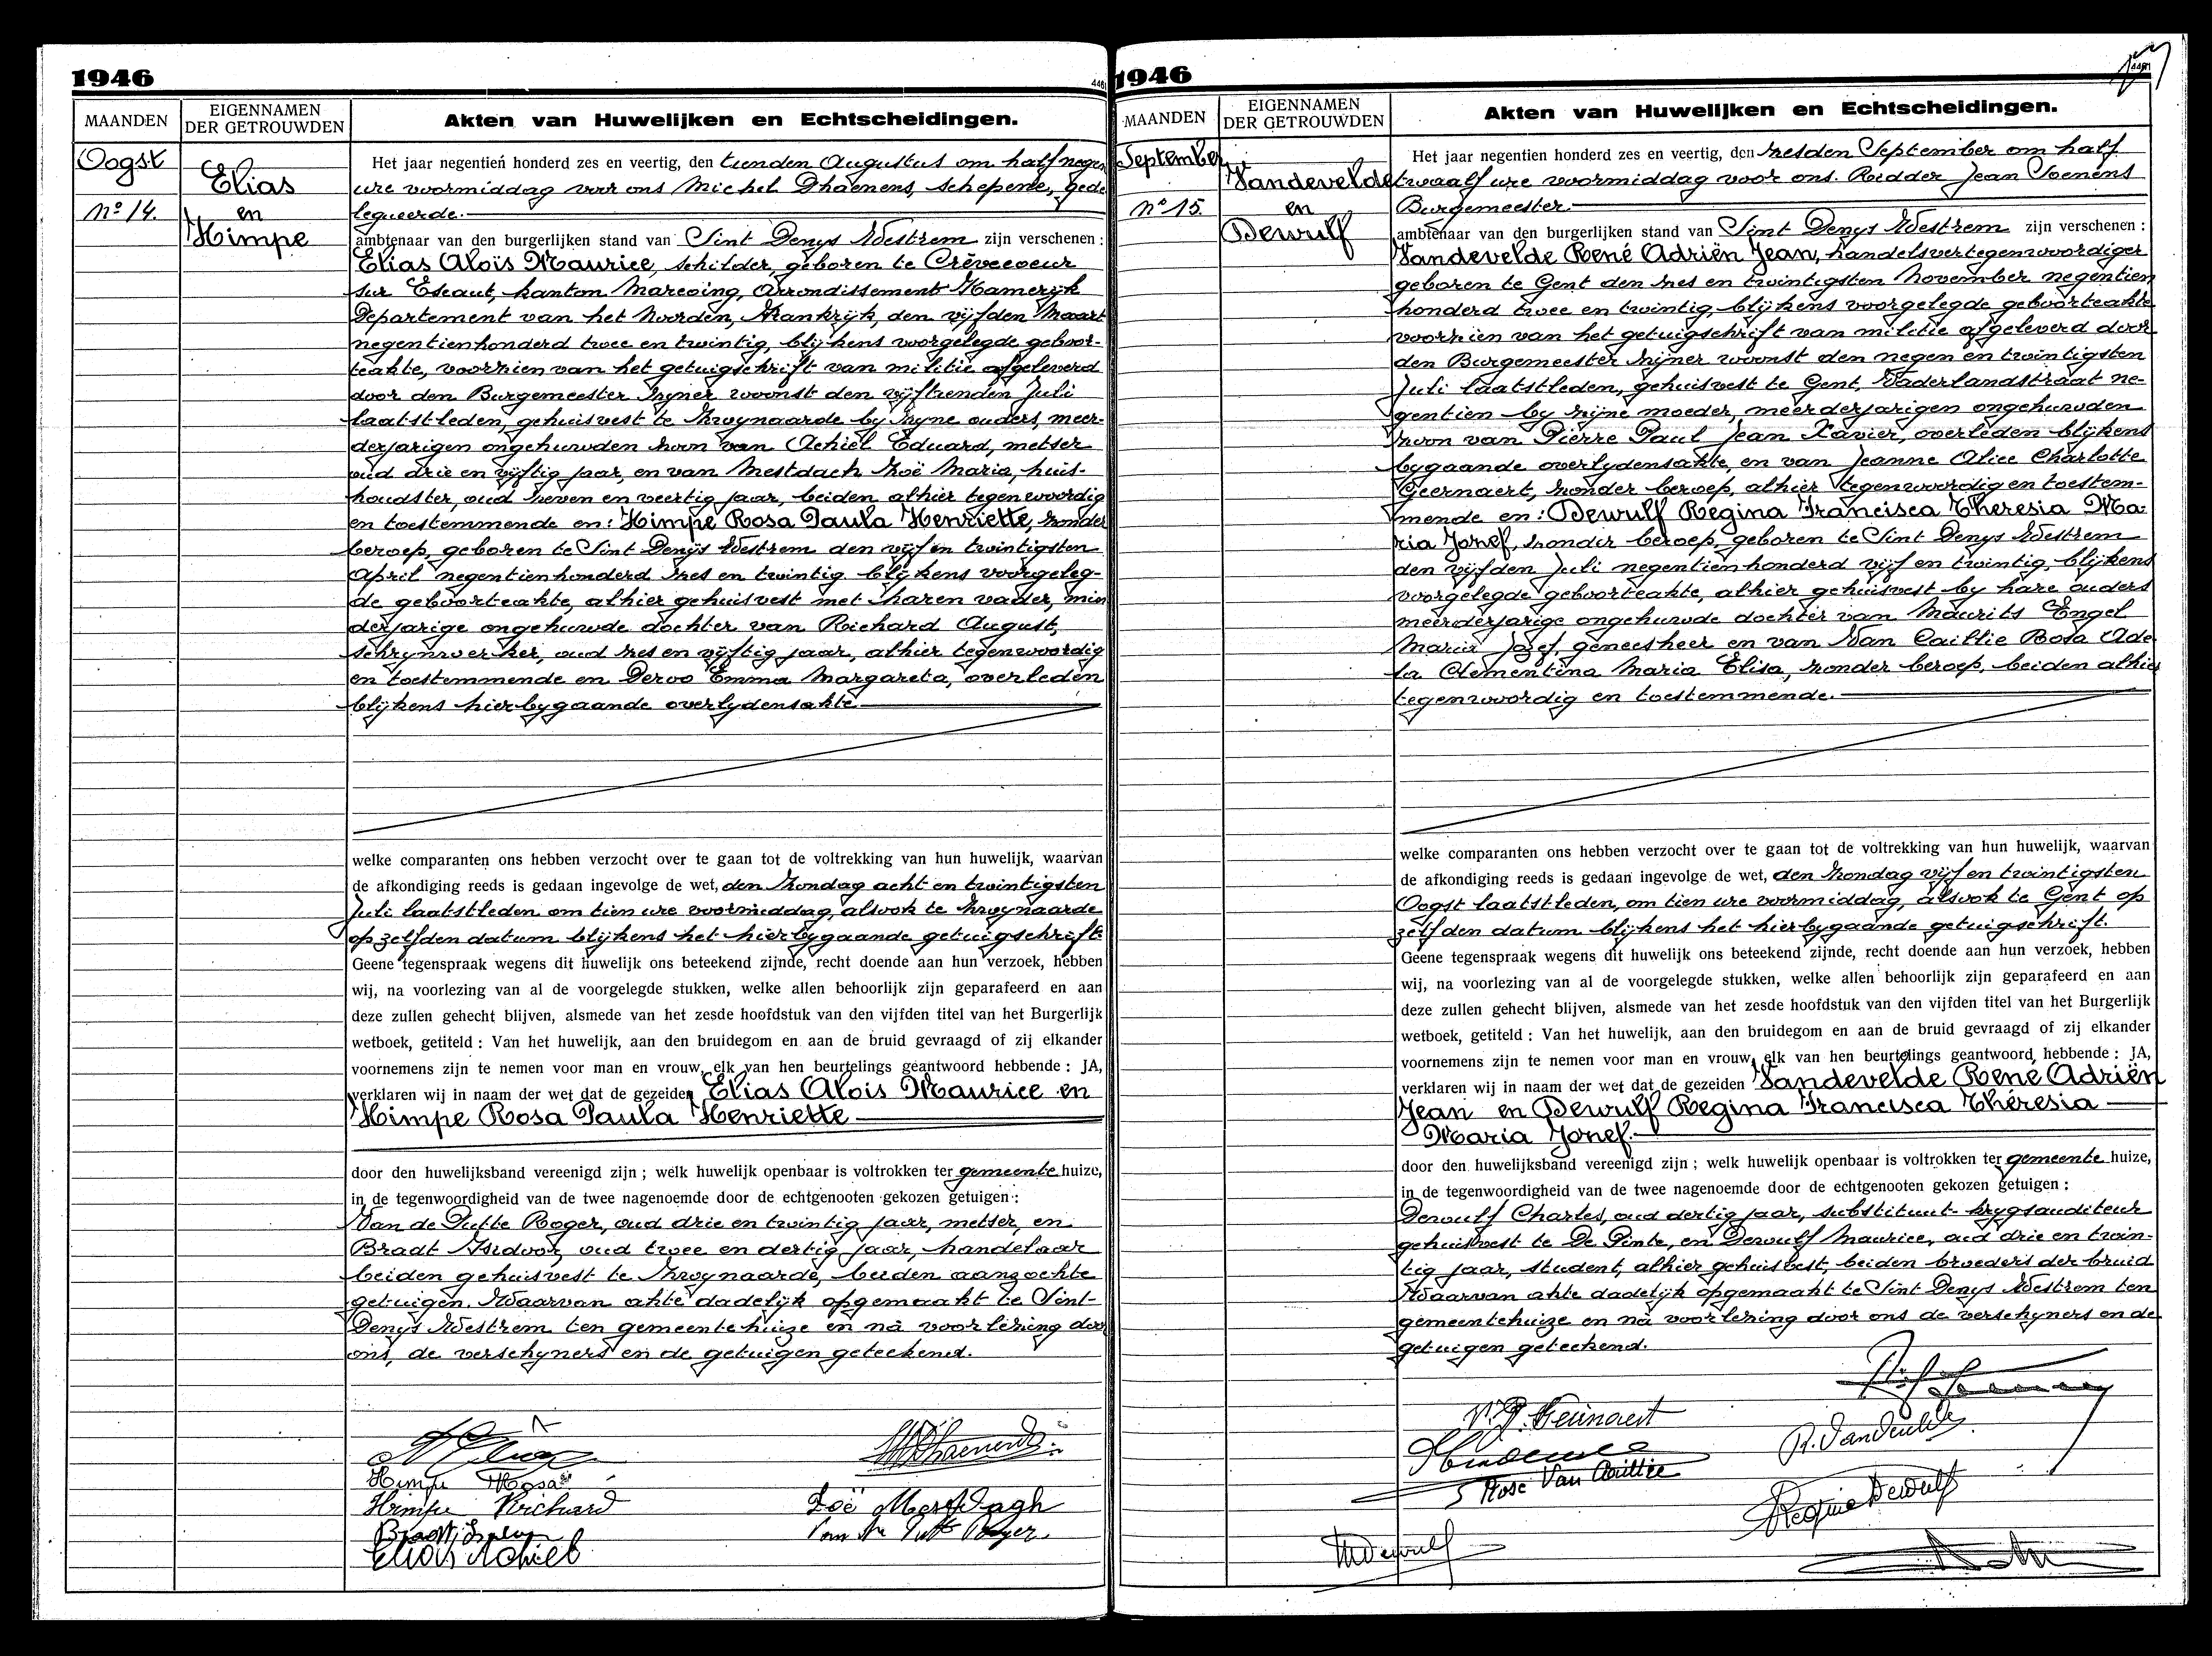 1946
MAANDEN
EIGENNAMEN
DER GETROUWDEN
Akten van Huwelijken en Echtscheidingen.
Oogst
Nº 14.
Elias
en
Himpe
Het jaar negentien honderd zes en veertig, den tienden Augustus om half negen
ure voormiddag voor ons Michel Dhaenens, schepene, gede
legueerde.
ambtenaar van den burgerlijken stand van Sint Denys Westrem zijn verschenen :
Elias Aloïs Maurice, schilder, geboren te Crèvecoeur
sur Escaut, kanton Marcoing, Arrondissement Kamerijk
Departement van het Noorden, Frankrijk, den vijfden Maart
negentienhonderd twee en twintig, blijkens voorgelegde geboor-
teakte, voorzien van het getuigschrift van militie afgeleverd
door den Burgemeester zyner woonst den vijftienden Juli
laatstleden, gehuisvest te Zwynaarde by zyne ouders, meer-
derjarigen ongehuwden zoon van Achiel Eduard, metser
oud drie en vijftig jaar, en van Mestdach Zoë Maria, huis-
houdster, oud zeven en veertig jaar, beiden alhier tegenwoordig
en toestemmende en: Himpe Rosa Paula Henriette, zonder
beroep, geboren te Sint Denijs Westrem den vijf en twintigsten
April negentienhonderd zes en twintig blijkens voorgeleg-
de geboorteakte, alhier gehuisvest met haren vader, min
derjarige ongehuwde dochter van Richard August,
schrynwerker, oud zes en vijftig jaar, alhier tegenwoordig
en toestemmende en Dervo Emma Margareta, overleden
blijkens hierbygaande overlydensakte
welke comparanten ons hebben verzocht over te gaan tot de voltrekking van hun huwelijk, waarvan
de afkondiging reeds is gedaan ingevolge de wet, den Zondag acht en twintigsten
Juli laatstleden om tien ure voormiddag, alsook te Zwynaarde
op zelfden datum blijkens het hierbygaande getuigschrift.
Geene tegenspraak wegens dit huwelijk ons beteekend zijnde, recht doende aan hun verzoek, hebben
wij, na voorlezing van al de voorgelegde stukken, welke allen behoorlijk zijn geparafeerd en aan
deze zullen gehecht blijven, alsmede van het zesde hoofdstuk van den vijfden titel van het Burgerlijk
wetboek, getiteld : Van het huwelijk, aan den bruidegom en aan de bruid gevraagd of zij elkander
voornemens zijn te nemen voor man en vrouw, elk van hen beurtelings geantwoord hebbende : JA,
verklaren wij in naam der wet dat de gezeiden Elias Alois Maurice en
Himpe Rosa Paula Henriette
door den huwelijksband vereenigd zijn ; welk huwelijk openbaar is voltrokken ter gemeente huize,
in de tegenwoordigheid van de twee nagenoemde door de echtgenooten gekozen getuigen :
Van de Putte Roger, oud drie en twintig jaar, metser, en
Bradt Isidoor, oud twee en dertig jaar, handelaar
beiden gehuisvest te Zwynaarde, beiden aanzochte
getuigen. Waarvan akte dadelijk opgemaakt te Sint-
Denys Westrem ten gemeentehuize en nà voorlezing door
ons, de verschyners en de getuigen geteekend.
Himpe Rosa
Himpe Richard
Zoë Mestdagh
Elias Achiel
1946
MAANDEN
EIGENNAMEN
DER GETROUWDEN
Akten van Huwelijken en Echtscheidingen.
September
Nº 15.
Vandevelde
en
Dewulf
Het jaar negentien honderd zes en veertig, den zesden September om half
twaalf ure voormiddag voor ons. Ridder Jean Soenens
Burgemeester
ambtenaar van den burgerlijken stand van Sint Denys Westrem zijn verschenen :
Vandevelde René Adriën Jean, handelsvertegenwoordiger
geboren te Gent den zes en twintigsten November negentien
honderd twee en twintig, blijkens voorgelegde geboorteakte
voorzien van het getuigschrift van militie afgeleverd door
den Burgemeester zijner woonst den negen en twintigsten
Juli laatstleden, gehuisvest te Gent, Vaderlandstraat ne-
gentien by zijne moeder, meerderjarigen ongehuwden
zoon van Pierre Paul Jean Xavier, overleden blijkens
bygaande overlydensakte, en van Jeanne Alice Charlotte
Geernaert, zonder beroep, alhier tegenwoordig en toestem-
mende en: Dewulf Regina Francisca Theresia Ma-
ria Jozef, zonder beroep, geboren te Sint Denys Westrem
den vijfden Juli negentienhonderd vijf en twintig, blijkens
voorgelegde geboorteakte, alhier gehuisvest by hare ouders
meerderjarige ongehuwde dochter van Maurits Engel
Maria Jozef, geneesheer en van Van Caillie Rosa Ade
la Clementina Maria Elisa, zonder beroep, beiden alhier
tegenwoordig en toestemmende.
welke comparanten ons hebben verzocht over te gaan tot de voltrekking van hun huwelijk, waarvan
de afkondiging reeds is gedaan ingevolge de wet, den Zondag vijf en twintigsten
Oogst laatstleden, om tien ure voormiddag, alsook te Gent op
zelfden datum blijkens het hierbygaande getuigschrift.
Geene tegenspraak wegens dit huwelijk ons beteekend zijnde, recht doende aan hun verzoek, hebben
wij, na voorlezing van al de voorgelegde stukken, welke allen behoorlijk zijn geparafeerd en aan
deze zullen gehecht blijven, alsmede van het zesde hoofdstuk van den vijfden titel van het Burgerlijk
wetboek, getiteld : Van het huwelijk, aan den bruidegom en aan de bruid gevraagd of zij elkander
voornemens zijn te nemen voor man en vrouw, elk van hen beurtelings geantwoord hebbende : JA,
verklaren wij in naam der wet dat de gezeiden Vandevelde René Adriën
Jean en Dewulf Regina Francisca Thérèsia
Maria Jozef.
door den huwelijksband vereenigd zijn ; welk huwelijk openbaar is voltrokken ter gemeente huize,
in de tegenwoordigheid van de twee nagenoemde door de echtgenooten gekozen getuigen :
Dewulf Charles, oud dertig jaar, substituut-krygsauditeur
gehuisvest te De Pinte, en Dewulf Maurice, oud drie en twin-
tig jaar, student, alhier gehuisvest, beiden broeders der bruid
Waarvan akte dadelijk opgemaakt te Sint Denys Westrem ten
gemeentehuize en nà voorlezing door ons de verschyners en de
getuigen geteekend.
R. Vandevelde
Rose Van Caillie
Regina Dewulf
MDewulf